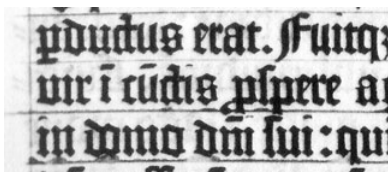 ꝓductus erat. Fuitqꝫ
vir ī cūctis ꝓspere a
in domo dñi sui: qui